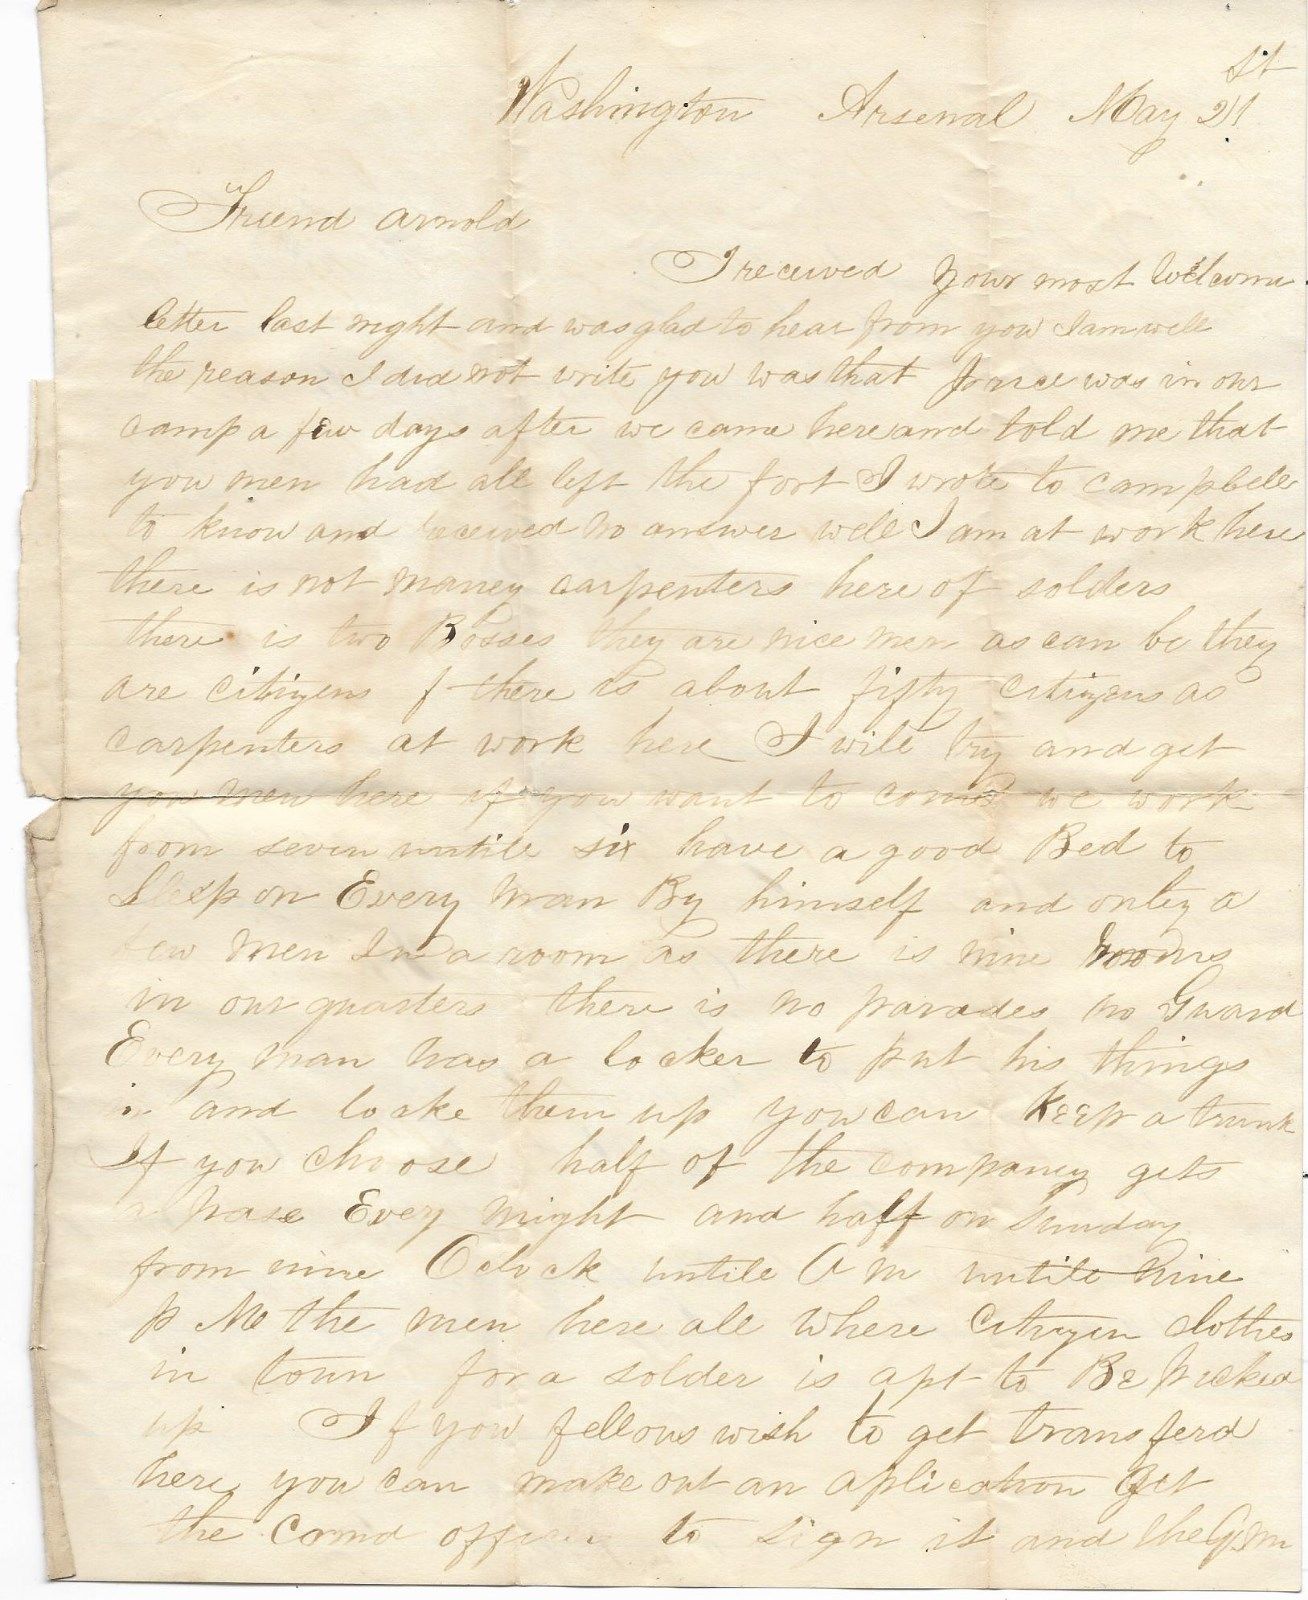 st
Washington Arsenal May 21
Friend Arnold
I received your most Welcome
letter last night and was glad to hear from you I am well
the reason I did not write you was that was in our
camp a few days after we came here and told me that
you men had all left the fort I wrote to campbell
to know and received no answer well I am at work here
there is not maney carpenters here of solders
there is two Bosses they are nice men as can be they
are citizens & there is about fifty citizens as
carpenters at work here I will try and get
you men here if you want to come we work
from seven untile six have a good Bed to
Sleep on Every man By himself and only a
few men In a room as there is nine rooms
in our quarters there is no parades no Guard
Every man has a locker to put his things
in and locke them up you can Keep a trunk
If you choose half of the company gets
a pase Every night and half on Sunday
from nine Oclock untile A m untile nine
p M the men here all where citizen clothes
in town for a solder is apt to Be picked
up If you fellows wish to get transferd
here you can make out an aplication Get
the comd to sign it and the